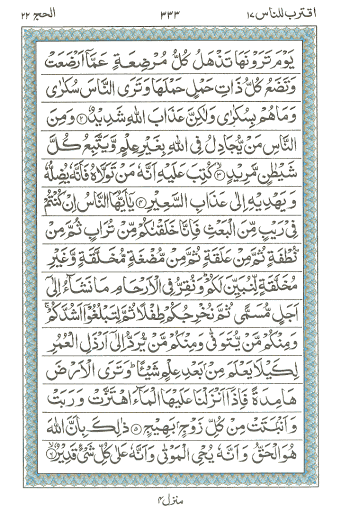 اقترب للناس ١٧ ٣٣٣ الحج ٢٢
يَوْمَ تَرَوْنَهَا تَذْهَلُ كُلُّ مُرْضِعَةٍ عَمَّآ اَرْضَعَتْ
وَتَضَعُ كُلُّ ذَاتِ حَمْلٍ حَمْلَهَا وَتَرَى النَّاسَ سُكٰرٰى
وَمَا هُمْ بِسُكٰرٰى وَلٰكِنَّ عَذَابَ اللهِ شَدِيْدٌ ۝٢ وَمِنَ
النَّاسِ مَنْ يُّجَادِلُ فِى اللهِ بِغَيْرِ عِلْمٍ وَّيَتَّبِعُ كُلَّ
شَيْطٰنٍ مَّرِيْدٍ ۝٣ كُتِبَ عَلَيْهِ اَنَّهٗ مَنْ تَوَلَّاهُ فَاَنَّهٗ يُضِلُّهٗ
وَيَهْدِيْهِ اِلٰى عَذَابِ السَّعِيْرِ ۝٤ يٰٓاَيُّهَا النَّاسُ اِنْ كُنْتُمْ
فِيْ رَيْبٍ مِّنَ الْبَعْثِ فَاِنَّا خَلَقْنٰكُمْ مِّنْ تُرَابٍ ثُمَّ مِنْ
نُّطْفَةٍ ثُمَّ مِنْ عَلَقَةٍ ثُمَّ مِنْ مُّضْغَةٍ مُّخَلَّقَةٍ وَّغَيْرِ
مُخَلَّقَةٍ لِّنُبَيِّنَ لَكُمْ ؕ وَنُقِرُّ فِى الْاَرْحَامِ مَا نَشَآءُ اِلٰٓى
اَجَلٍ مُّسَمًّى ثُمَّ نُخْرِجُكُمْ طِفْلًا ثُمَّ لِتَبْلُغُوْٓا اَشُدَّكُمْ ۚ
وَمِنْكُمْ مَّنْ يُّتَوَفّٰى وَمِنْكُمْ مَّنْ يُّرَدُّ اِلٰٓى اَرْذَلِ الْعُمُرِ
لِكَيْلَا يَعْلَمَ مِنْۢ بَعْدِ عِلْمٍ شَيْـًٔا ؕ وَتَرَى الْاَرْضَ
هَامِدَةً فَاِذَآ اَنْزَلْنَا عَلَيْهَا الْمَآءَ اهْتَزَّتْ وَرَبَتْ
وَاَنْۢبَتَتْ مِنْ كُلِّ زَوْجٍۭ بَهِيْجٍ ۝٥ ذٰلِكَ بِاَنَّ اللهَ
هُوَ الْحَقُّ وَاَنَّهٗ يُحْىِ الْمَوْتٰى وَاَنَّهٗ عَلٰى كُلِّ شَىْءٍ قَدِيْرٌ ۝٦
منزل ٤